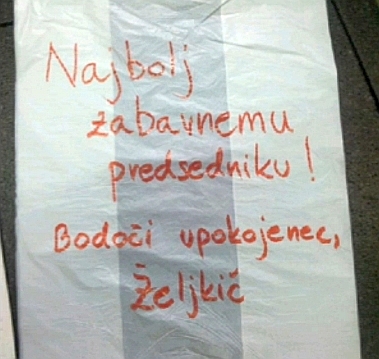 Najbolj
zabavnemu
predsedniku!
Bodoči upokojenec,
Željkič